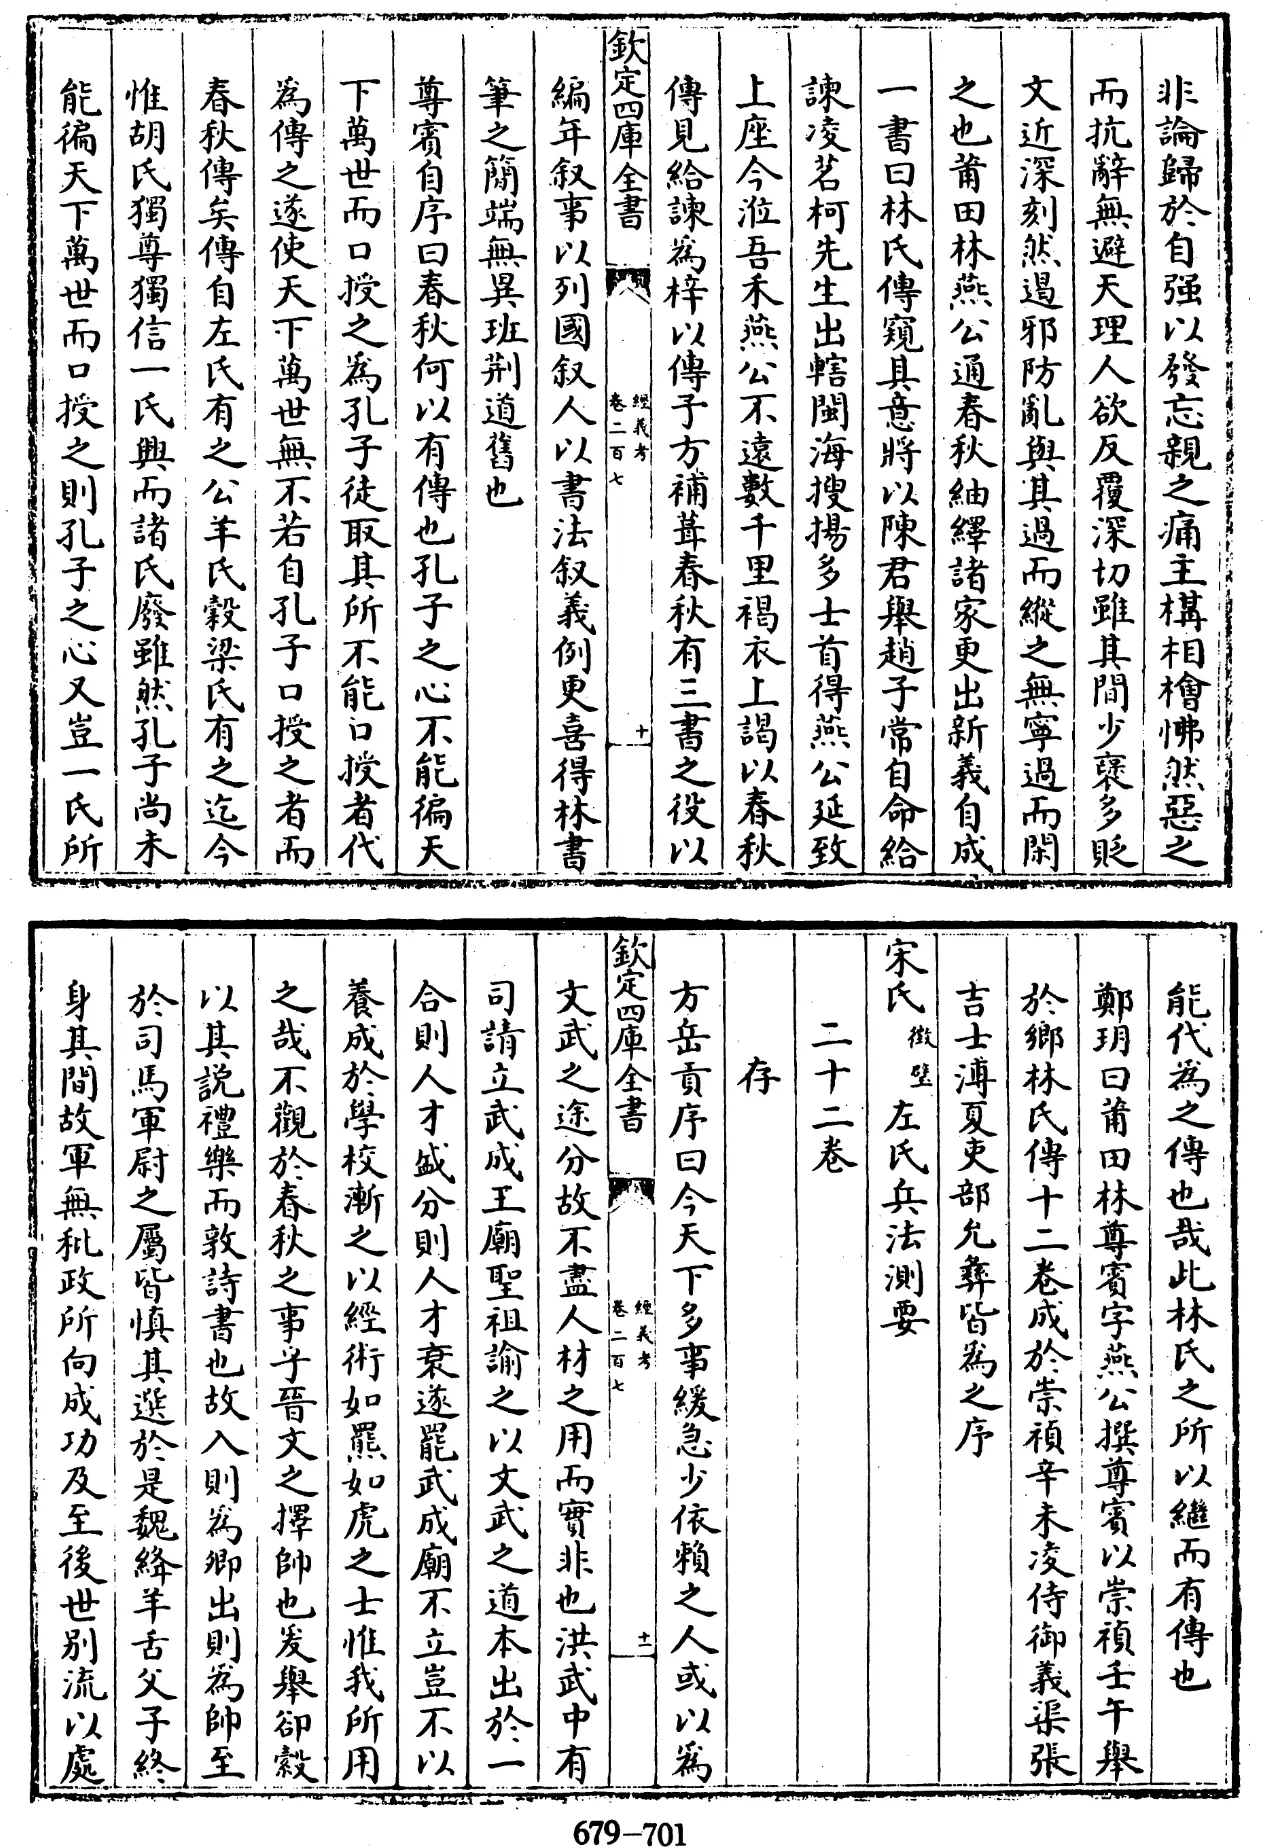 非論歸於自强以發忘親之痛主構相檜怫然惡之
而抗辭無避天理人欲反覆深切雖其間少褒多貶
文近深刻然遏邪防亂與其過而縱之無寧過而閑
之也莆田林燕公通春秋紬繹諸家更出新義自成
一書曰林氏傳窺其意將以陳君舉趙子常自命給
諫凌茗柯先生出轄閩海搜揚多士首得燕公延致
上座今涖吾禾燕公不遠數千里褐衣上謁以春秋
傳見給諫為梓以傳子方補葺春秋有三書之役以
欽定四庫全書
經義考
卷二百七
十
編年叙事以列國叙人以書法叙義例更喜得林書
筆之簡端無異班荆道舊也
尊賓自序曰春秋何以有傳也孔子之心不能徧天
下萬世而口授之為孔子徒取其所不能口授者代
為傳之遂使天下萬世無不若自孔子口授之者而
春秋傳矣傳自左氏有之公羊氏穀梁氏有之迄今
惟胡氏獨尊獨信一氏興而諸氏廢雖然孔子尚未
能徧天下萬世而口授之則孔子之心又豈一氏所
能代為之傳也哉此林氏之所以繼而有傳也
鄭玥曰莆田林尊賓字燕公撰尊賓以崇禎壬午舉
於鄉林氏傳十二卷成於崇禎辛未凌侍御義渠張
吉士溥夏吏部允彝皆為之序
宋氏徵璧左氏兵法測要
二十二卷
存
方岳貢序曰今天下多事緩急少依賴之人或以為
欽定四庫全書
經義考
卷二百七
十一
文武之途分故不盡人材之用而實非也洪武中有
司請立武成王廟聖祖諭之以文武之道本出於一
合則人才盛分則人才衰遂罷武成廟不立豈不以
養成於學校漸之以經術如羆如虎之士惟我所用
之哉不觀於春秋之事乎晉文之擇帥也爰舉卻縠
以其說禮樂而敦詩書也故入則為卿出則為帥至
於司馬軍尉之屬皆慎其選於是魏絳羊舌父子終
身其間故軍無秕政所向成功及至後世别流以處
679-701